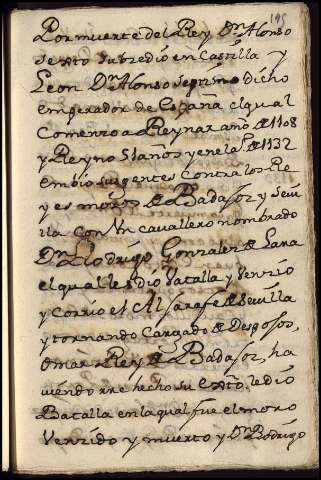 195
Por muerte del Rey Dn Alonso
Sexto Subzedio en Castilla y
Leon Dn Alonso Septimo dicho
emperador de España el qual
Comenzo a Reynar año de 1108
y Reyno 51 años y en el a de 1132
embio sus gentes contra los Re
yes moros de Badajoz y Sevi
lla Con Un cavallero nombrado
Dn Rodrigo Gonzalez de Lara
el qual les dio vatalla y Venzio
y Corrio el Alxarafe de Sevilla
y tornando Cargado de Despojos,
Omar Rey de Badajoz, ha
viendo hecho su exto, le dio
Batalla en la qual fue el moro
Venzido y muerto y Dn Rodrigo